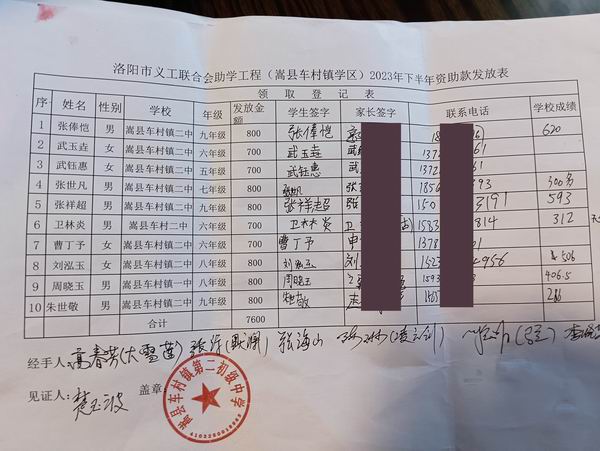 洛阳市义工联合会助学工程（嵩县车村镇学区）2023年下半年资助款发放表
领 取 登 记 表
序号 姓名 性别 学校 年级 发放金额 学生签字 家长签字 联系电话 学校成绩
1 张俸恺 男 嵩县车村镇二中 九年级 800 张俸恺 620
2 武玉垚 女 嵩县车村镇二中 六年级 700 武玉垚 1372 61
3 武钰惠 女 嵩县车村镇二中 五年级 700 武钰惠 1372
4 张世凡 男 嵩县车村镇二中 七年级 800 张 1856 93 300多
5 张祥超 男 嵩县车村镇二中 九年级 800 张祥超 张 150 3191 593
6 卫林炎 男 嵩县车村二中 六年级 700 卫林炎 1583 814 312
7 曹丁予 女 嵩县车村镇二中 六年级 700 曹丁予 1378 21
8 刘泓玉 女 嵩县车村镇二中 八年级 800 刘泓玉 刘 1523 4956 506
9 周晓玉 男 嵩县车村镇一中 八年级 800 周晓玉 1593 406.5
10 朱世敬 男 嵩县车村镇二中 九年级 800
合计 7600
经手人: 高春芳(大雪莲) 张海山
见证人: 楚玉波 盖章:
嵩县车村镇第二初级中学